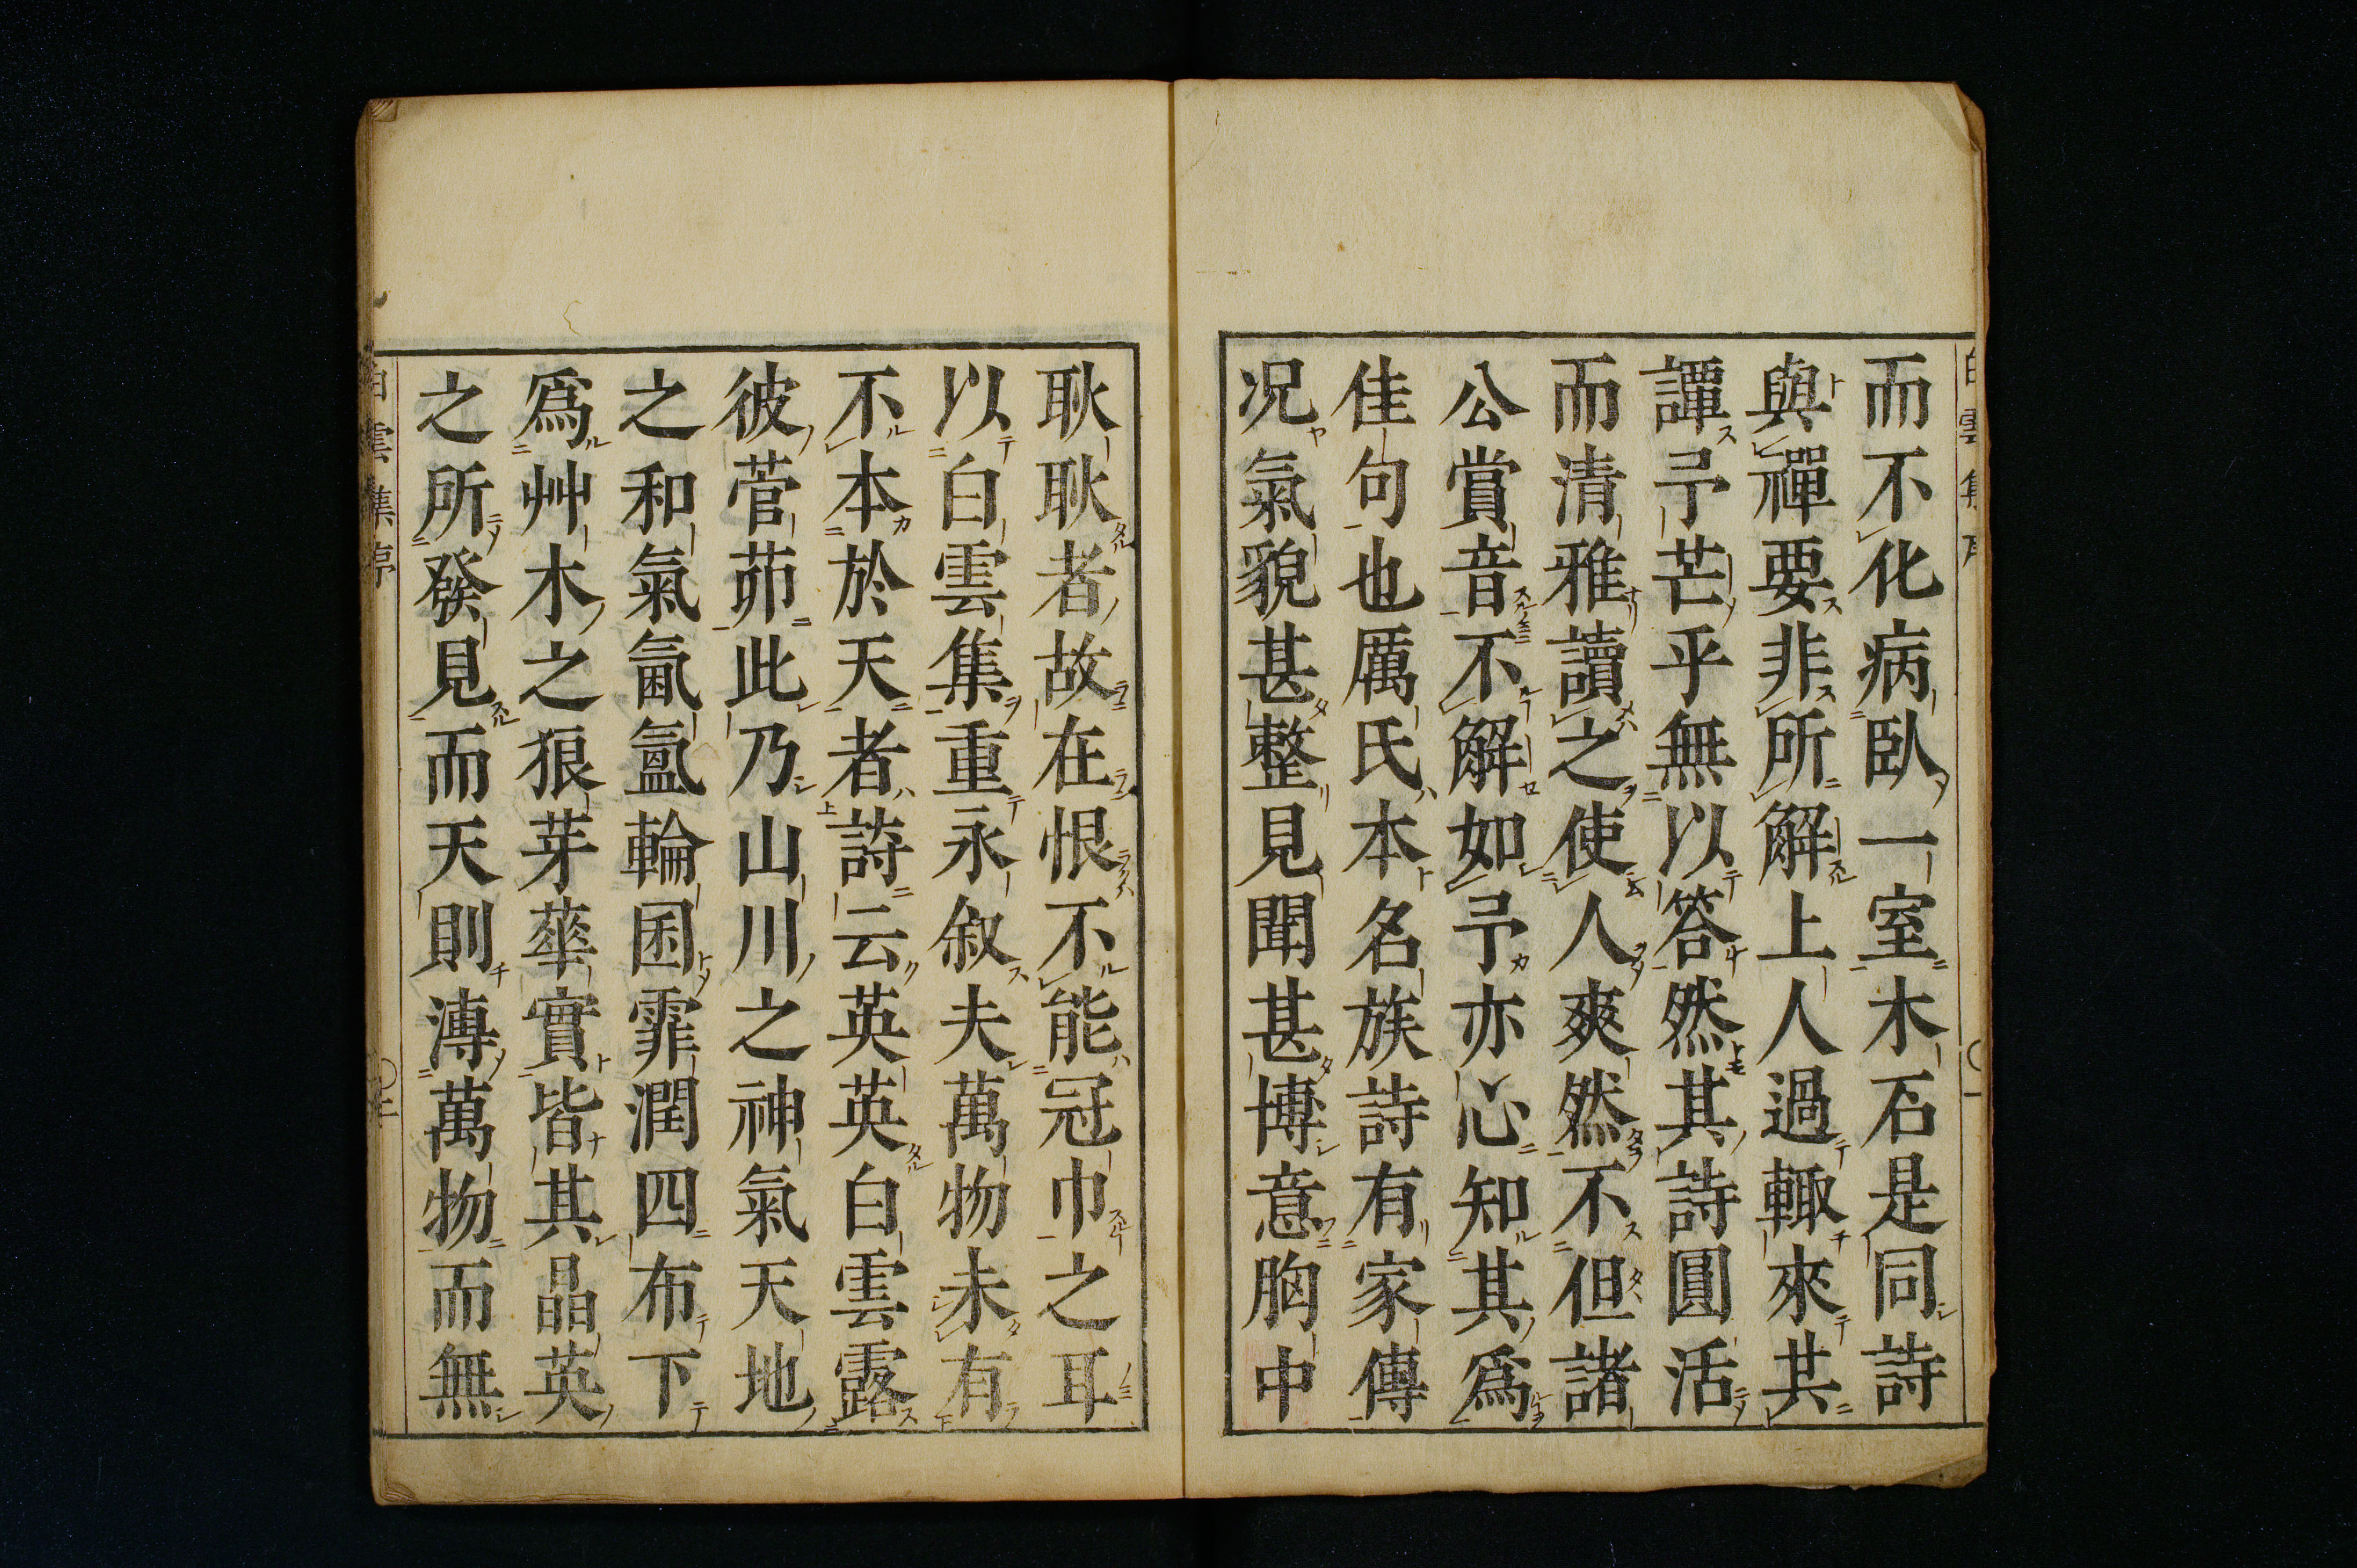 而不化病臥一室木石是同詩
與禪要非所解上人過輙來其
譚予芒乎無以答然其詩圓活
而清雅讀之使人爽然不但諸
公賞音不解如予亦心知其爲
佳句也厲氏本名族詩有家傳
况氣貌甚整見聞甚博意胸中
耿耿者故在恨不能冠巾之耳
以白雲集重永叙夫萬物未有
不本於天者詩云英英白雲露
彼菅茆此乃山川之神氣天地
之和氣氤氳輪囷霏潤四布下
爲艸木之狠芽蘂實皆其晶英
之所發見而天則溥萬物而無
白雲集序